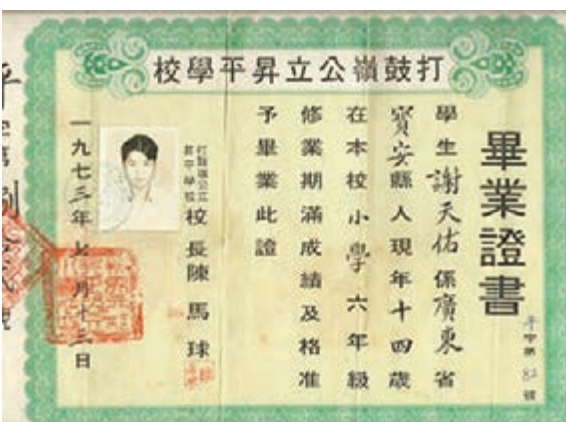 打鼓嶺公立昇平學校
畢業證書
學生謝天佑係廣東省
寶安縣人現年十四歲
在本校小學六年級
修業期滿成績及格准
予畢業此證
打鼓嶺公立
昇平學校
校長陳馬球
一九七三年七月十三日